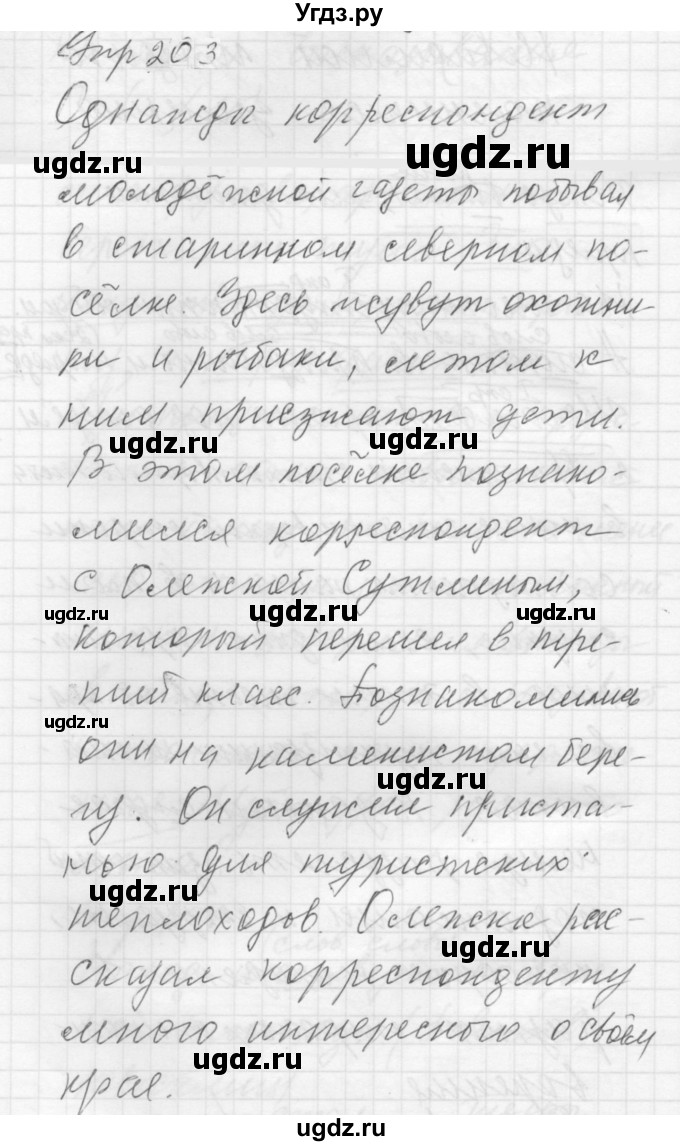 Угдз.ру
Упр 203
Однажды корреспондент
ugdz.ru ugdz.ru
молодёжной газеты побывал
в старинном северном по-
сёлке. Здесь живут охотни
ки и рыбаки, летом к
ним приезжают дети.
ugdz.ru ugdz.ru
В этом посёлке познако-
мился корреспондент
с Олежкой Сутлиным,
ugdz.ru ugdz.ru ugdz.ru
который перешел в тре-
тий класс. Познакомились
ugdz.ru
они на каменистом бере-
ugdz.ru
гу. Он служил приста-
нью для туристских
ugdz.ru
теплоходов. Олежка рас-
ugdz.ru
сказал корреспонденту
много интересного о своём
ugdz.ru
крае.
ugdz.ru